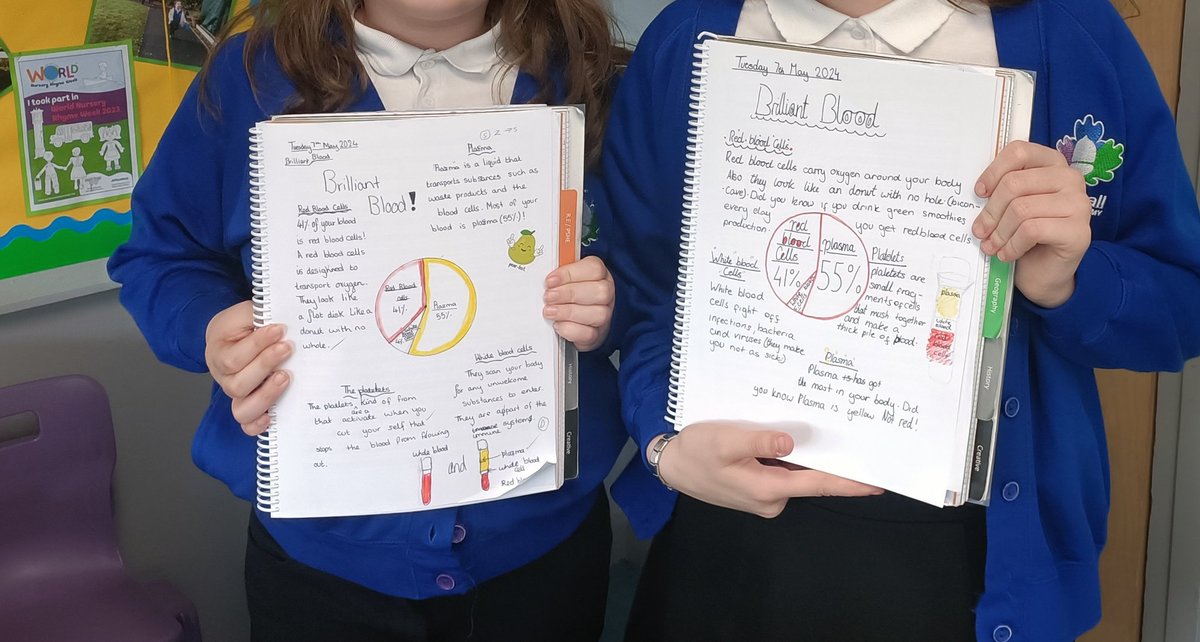 WORLD
Nursery Rhyme Week
I took part in
World Nursery
Rhyme Week 2023
Tuesday 7th May 2024
Brilliant Blood.
Brilliant
Blood!
Red Blood Cells
41% of your blood
is red blood cells!
A red blood cells
is desighned to
transport oxygen.
They look like
a flat disk like a
donut with no
whole.
Plasma
Plasma is a liquid that
transports substances such as
waste products and the
blood cells. Most of your
blood is plasma (55%)!
Red Blood
cells
41%
Plasma
55%
4%
The platelets
The platelets are a kind of from
that activate when you
cut your self that
stops the blood from flowing
out.
White blood cells
They scan your body
for any unwelcome
substances to enter.
They are appart of the
immune system
whole blood
and
Plasma
white blood
cell
Red
R.E / PSHE
History
Creative
Tuesday 7th May 2024
Brilliant Blood
Red blood cells.
Red blood cells carry oxygen around your body
Also they look like an donut with no hole. (bicon-
cave). Did you know if you drink green smoothies
every day you get red blood cells
production.
red
blood
cells
41%
plasma
55%
White blood
Cells
White blood
cells fight off
infections, bacteria
and viruses (they make
you not as sick)
Platelets
platelets are
small frag-
ments of cells
that mush together
and make a
thick pile of blood.
plasma
white
blood
red
blood
cells
Plasma
Plasma has got
the most in your body. Did
you know Plasma is yellow Not red!
Geography
History
Creative